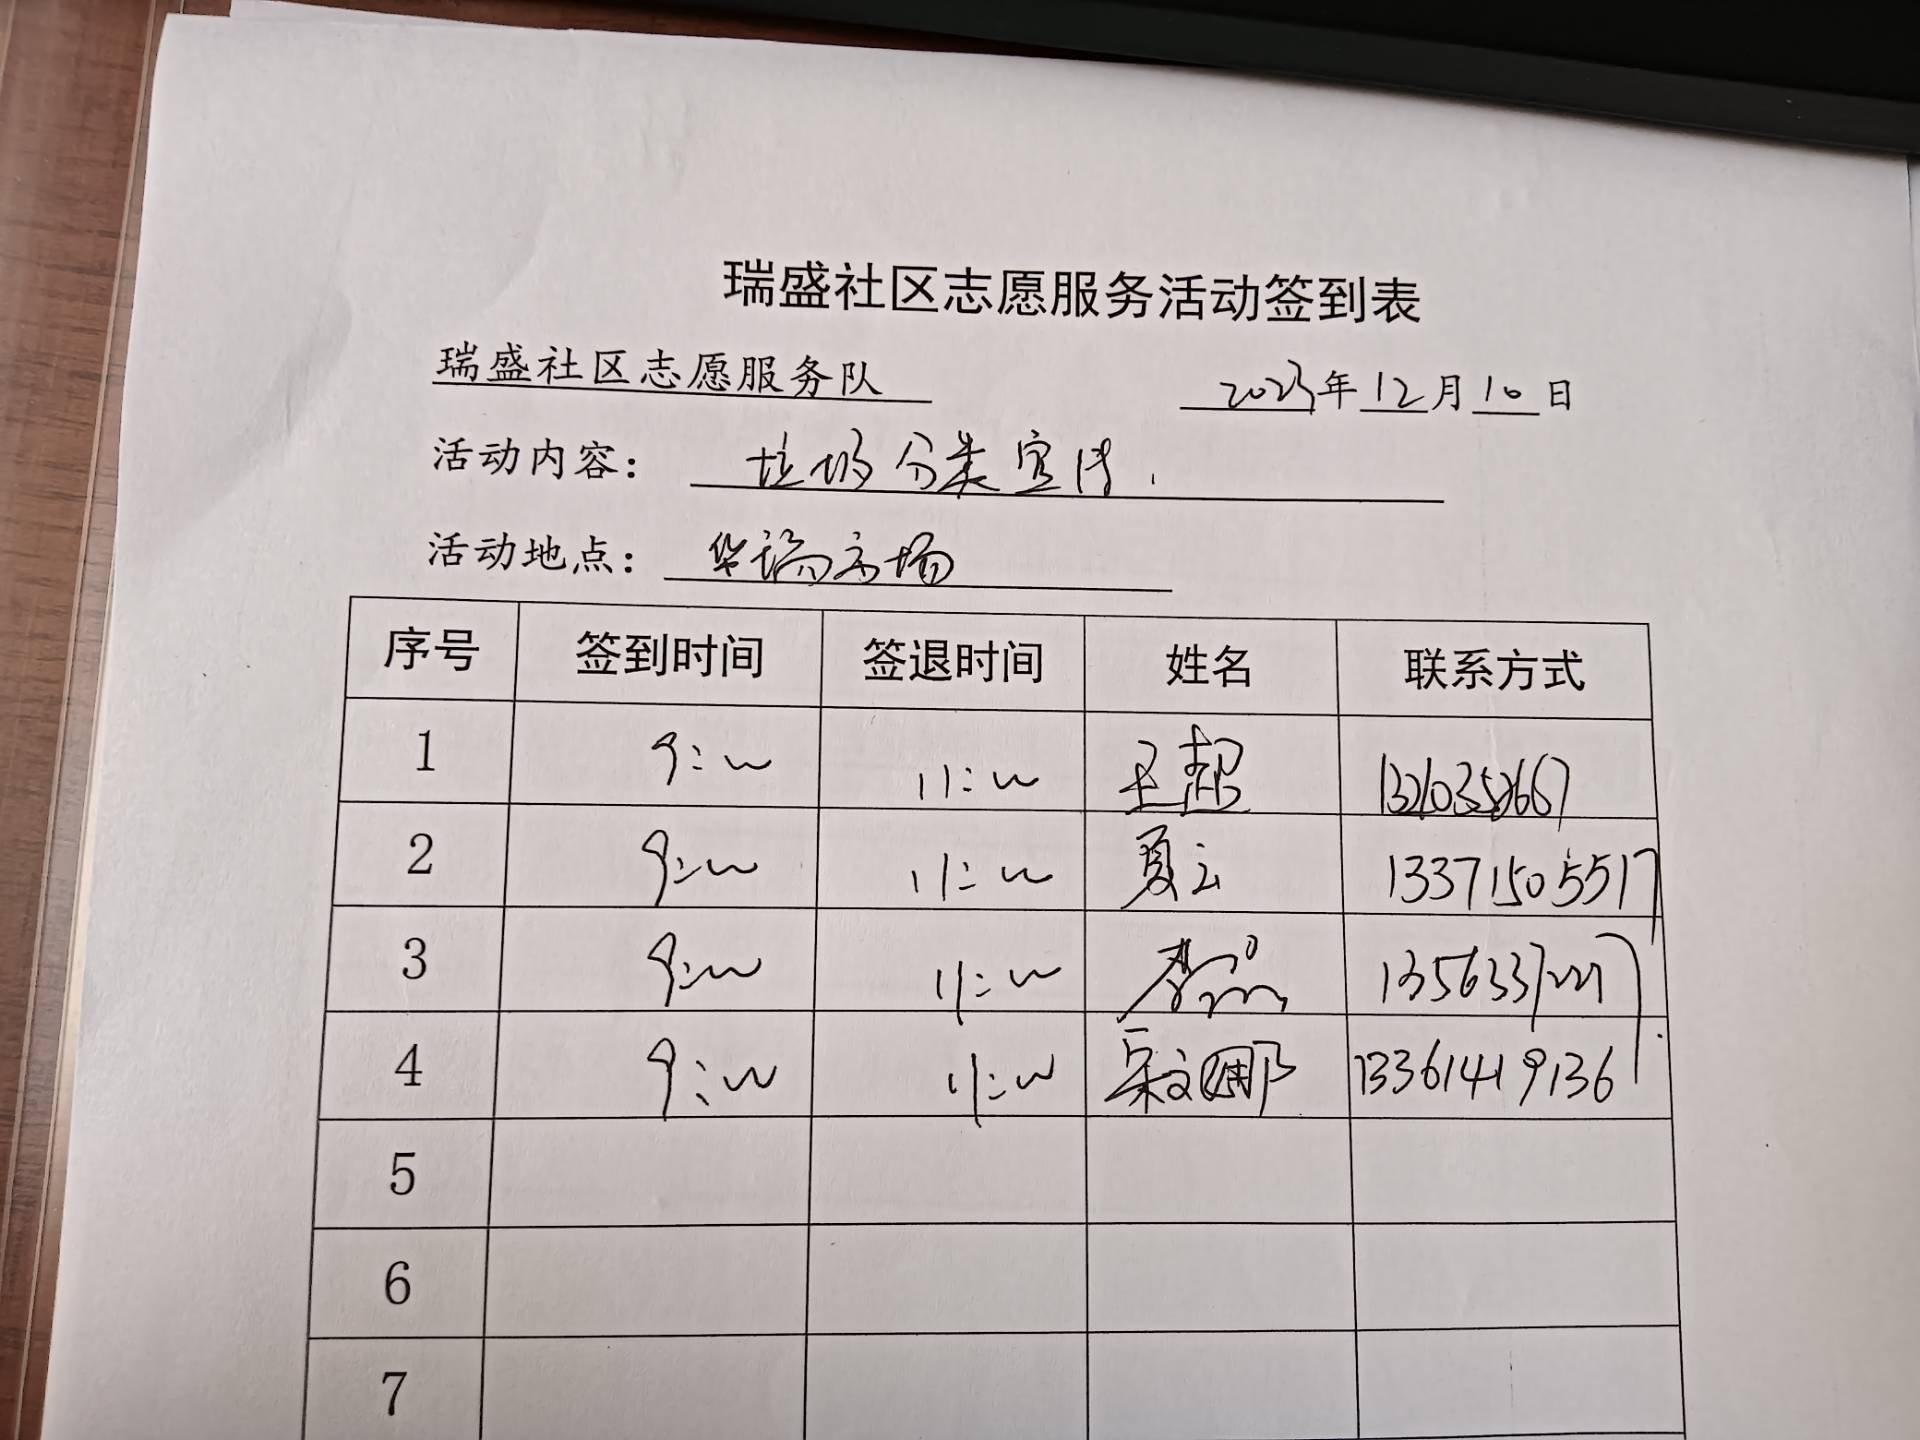 瑞盛社区志愿服务活动签到表
瑞盛社区志愿服务队 2023年12月10日
活动内容： 垃圾分类宣传.
活动地点： 华瑞市场
序号 签到时间 签退时间 姓名 联系方式
1 9:00 11:00 王超
2 9:00 11:00 夏云 13371505517
3 9:00 11:00
4 9:00 11:00 13361419136
5
6
7